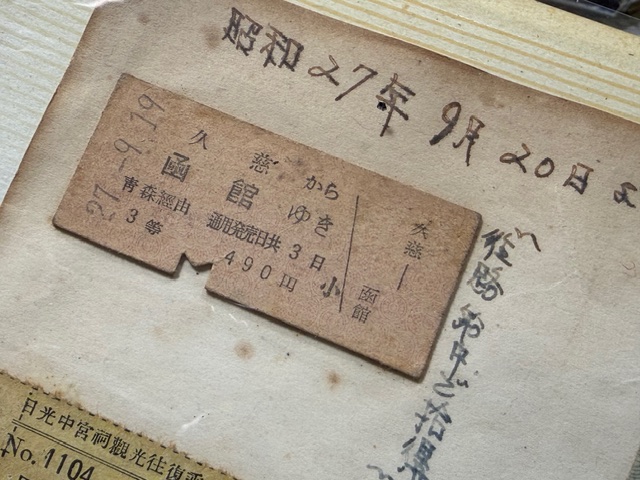 昭和27年9月20日
27.-9.19
久慈から
函館ゆき
青森経由 通用発売日共3日
3等 490円 小
久慈―函館
経路
日光中宮祠觀光往復
No.1104